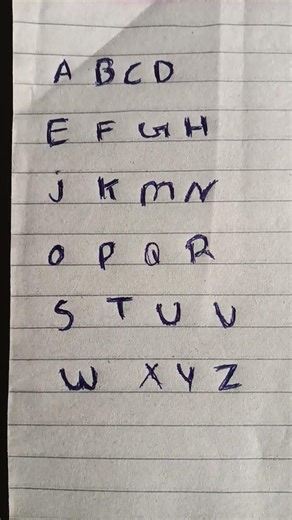 A B C D
E F G H
J K M N
O P Q R
S T U V
W X Y Z